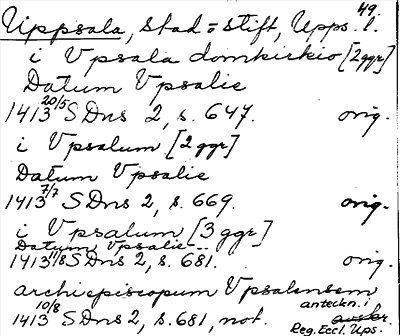 49.
Uppsala, stad o stift, Upps. l.
i Vpsala domkirkio [2ggr]
Datum Vpsalie
1413 20/5 SDns 2, s. 647. orig.
i Vpsalum [2ggr]
Datum Vpsalie
1413 7/7 SDns 2, s. 669. orig.
i Vpsalum [3ggr]
Datum Vpsalie...
1413 11/8 SDns 2, s. 681. orig.
archiepiscopum Vpsalensem
1413 10/8 SDns 2, s. 681, not. anteckn. i
avskr.
Reg. Eccl. Ups.